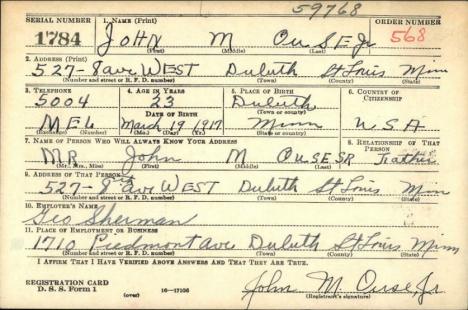 59768
SERIAL NUMBER 1. NAME (Print) ORDER NUMBER
1784 JOHN M OUSE Jr 568
(First) (Middle) (Last)
2. ADDRESS (Print)
527-8 ave WEST Duluth St Louis Minn
(Number and street or R. F. D. number) (Town) (County) (State)
3. TELEPHONE 4. AGE IN YEARS 5. PLACE OF BIRTH 6. COUNTRY OF CITIZENSHIP
5004 23 Duluth
DATE OF BIRTH (Town or county)
MEL March 19 1917 Minn U.S.A
(Exchange) (Number) (Mo.) (Day) (Yr.) (State or country)
7. NAME OF PERSON WHO WILL ALWAYS KNOW YOUR ADDRESS 8. RELATIONSHIP OF THAT PERSON
MR John M OUSE SR Father
(Mr., Mrs., Miss) (First) (Middle) (Last)
9. ADDRESS OF THAT PERSON
527-8 ave WEST Duluth St Louis Minn
(Number and street or R. F. D. number) (Town) (County) (State)
10. EMPLOYER'S NAME
Geo Sherman
11. PLACE OF EMPLOYMENT OR BUSINESS
1710 Piedmont ave Duluth St Louis Minn
(Number and street or R. F. D. number) (Town) (County) (State)
I AFFIRM THAT I HAVE VERIFIED ABOVE ANSWERS AND THAT THEY ARE TRUE.
REGISTRATION CARD
D. S. S. Form 1 (over) 16-17105 John M. Ouse, Jr
(Registrant's signature)